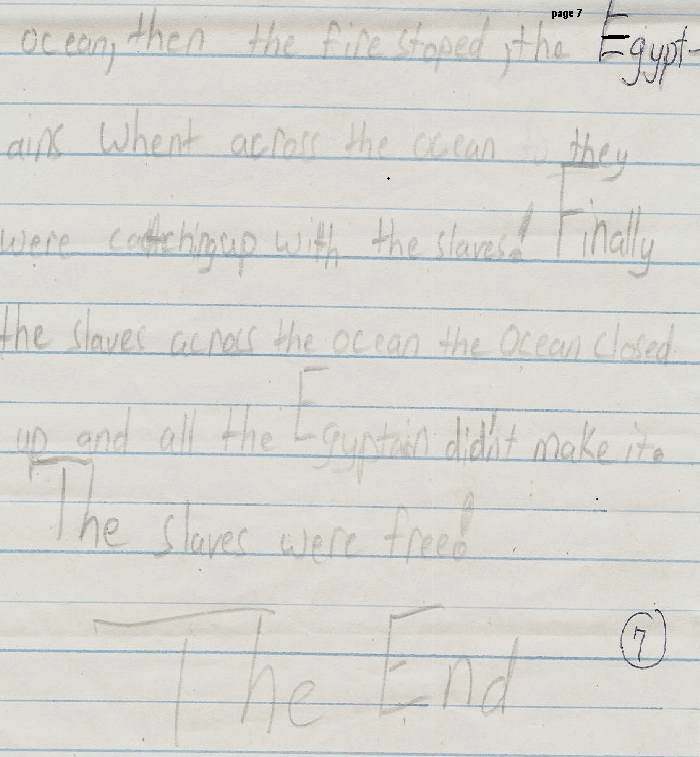 page 7
ocean, then the fire stoped, the Egypt-
ains Whent across the ocean they
were cattchingup with the slaves! Finally
the slaves across the ocean the Ocean closed
up and all the Egyptain didn't make it.
The slaves were free!
The End
7